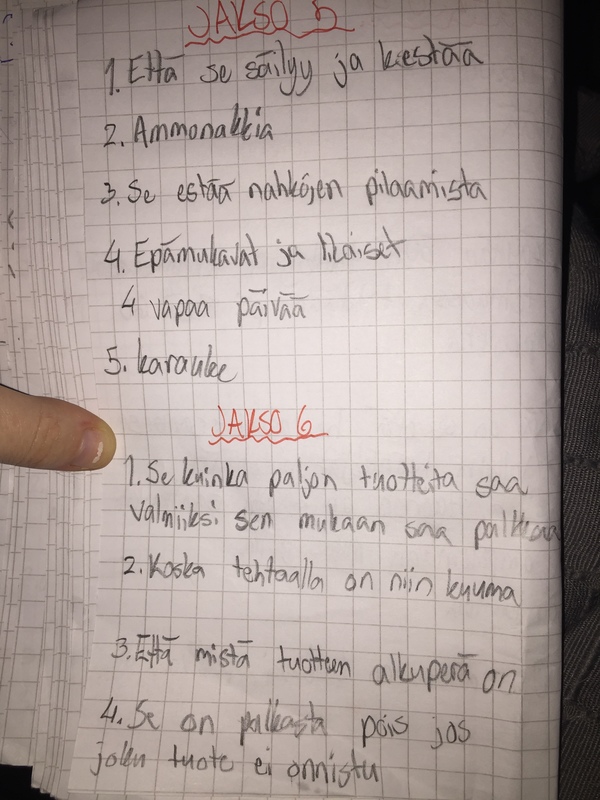 JAKSO 5
1. Että se säilyy ja kestää
2. Ammonakkia
3. Se estää nahkojen pilaamista
4. Epämukavat ja likaiset
4 vapaa päivää
5. karauke
JAKSO 6
1. Se kuinka paljon tuotteita saa
valmiiksi sen mukaan saa palkkaa
2. Koska tehtaalla on niin kuuma
3. Että mistä tuotteen alkuperä on
4. Se on palkasta pois jos
joku tuote ei onnistu